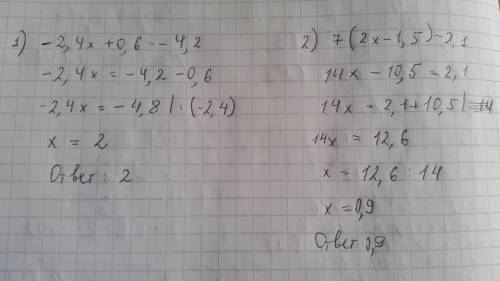 1) -2,4x + 0,6 = -4,2
-2,4x = -4,2 - 0,6
-2,4x = -4,8 | : (-2,4)
x = 2
Ответ: 2
2) 7(2x - 1,5) = 2,1
14x - 10,5 = 2,1
14x = 2,1 + 10,5 |
14x = 12,6
x = 12,6 : 14
x = 0,9
Ответ 0,9